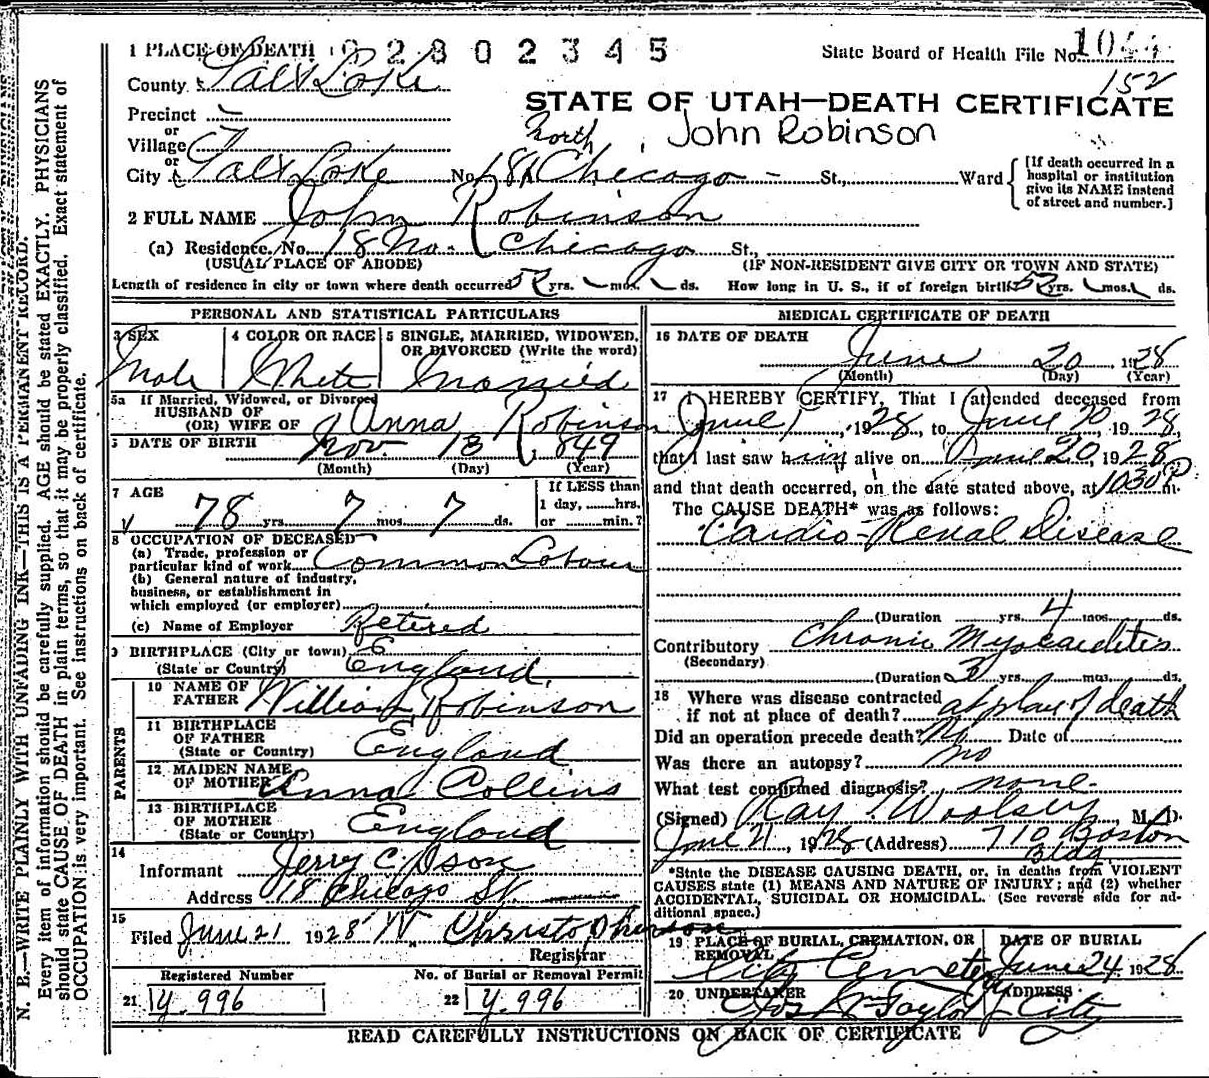 1 PLACE OF DEATH 02802345 State Board of Health File No. 104
County Salt Lake 152
STATE OF UTAH—DEATH CERTIFICATE
Precinct
or
Village North John Robinson
or
City Salt Lake No. 18 Chicago St., Ward
[If death occurred in a hospital or institution give its NAME instead of street and number.]
2 FULL NAME John Robinson
(a) Residence, No. 18 No. Chicago St.,
(USUAL PLACE OF ABODE) (IF NON-RESIDENT GIVE CITY OR TOWN AND STATE)
Length of residence in city or town where death occurred 52 yrs. mos. ds. How long in U. S., if of foreign birth 52 yrs. mos. ds.
PERSONAL AND STATISTICAL PARTICULARS
3 SEX 4 COLOR OR RACE 5 SINGLE, MARRIED, WIDOWED,
OR DIVORCED (Write the word)
Male White Married
5a If Married, Widowed, or Divorced
HUSBAND OF
(OR) WIFE OF Anna Robinson
6 DATE OF BIRTH Nov. 13 1849
(Month) (Day) (Year)
7 AGE If LESS than
1 day, hrs.
78 yrs. 7 mos. 7 ds. or min.?
8 OCCUPATION OF DECEASED
(a) Trade, profession or
particular kind of work Common Labour
(b) General nature of industry,
business, or establishment in
which employed (or employer)
(c) Name of Employer Retired
9 BIRTHPLACE (City or town)
(State or Country) England.
PARENTS
10 NAME OF
FATHER William Robinson
11 BIRTHPLACE
OF FATHER
(State or Country) England
12 MAIDEN NAME
OF MOTHER Anna Collins
13 BIRTHPLACE
OF MOTHER
(State or Country) England
14
Informant Jerry C.
Address 18 Chicago St.
15
Filed June 21 1928 W. Christopherson
Registrar
Registered Number No. of Burial or Removal Permit
21 Y.996 22 Y.996
MEDICAL CERTIFICATE OF DEATH
16 DATE OF DEATH
June 20, 1928
(Month) (Day) (Year)
17 I HEREBY CERTIFY, That I attended deceased from
June 1, 1928, to June 20, 1928,
that I last saw him alive on June 20, 1928
and that death occurred, on the date stated above, at 1030P m.
The CAUSE DEATH* was as follows:
Cardio-Renal Disease
(Duration yrs. 4 mos. ds.
Contributory Chronic Myocarditis
(Secondary)
(Duration 3 yrs. mos. ds.
18 Where was disease contracted
if not at place of death? at place of death
Did an operation precede death? No Date of
Was there an autopsy? no
What test confirmed diagnosis? none.
(Signed) Ray Woolsey, M. D.
June 21, 1928 (Address) 710 Boston
Bldg
*State the DISEASE CAUSING DEATH, or, in deaths from VIOLENT
CAUSES state (1) MEANS AND NATURE OF INJURY; and (2) whether
ACCIDENTAL, SUICIDAL OR HOMICIDAL. (See reverse side for ad-
ditional space.)
19 PLACE OF BURIAL, CREMATION, OR DATE OF BURIAL
REMOVAL
City Cemetery June 24 1928
20 UNDERTAKER ADDRESS
Taylor City
READ CAREFULLY INSTRUCTIONS ON BACK OF CERTIFICATE
N. B.—WRITE PLAINLY WITH UNFADING INK—THIS IS A PERMANENT RECORD.
Every item of information should be carefully supplied. AGE should be stated EXACTLY. PHYSICIANS
should state CAUSE OF DEATH in plain terms, so that it may be properly classified. Exact statement of
OCCUPATION is very important. See instructions on back of certificate.